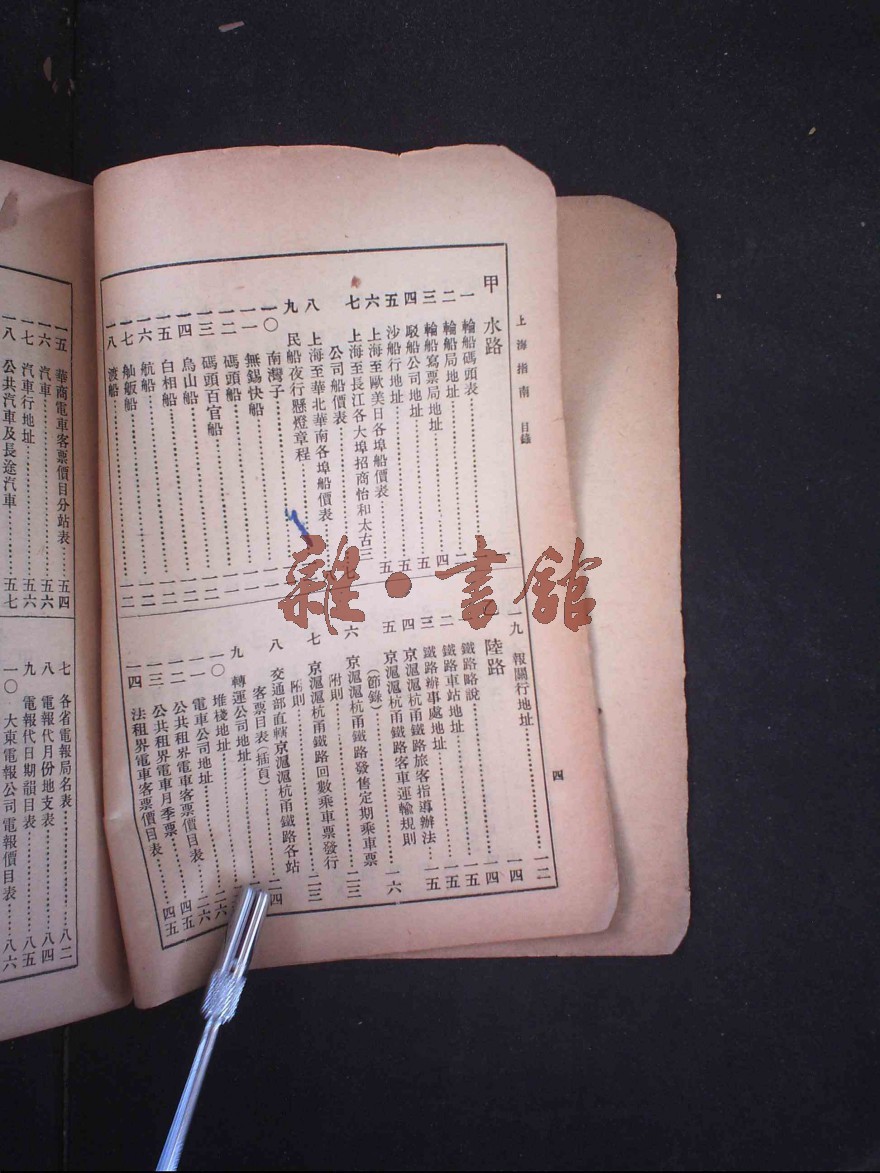 上海指南 目錄
四
甲 水路
一 輪船碼頭表
二 輪船局地址
三 輪船寫票局地址 四
四 駁船公司地址 五
五 沙船行地址 五
六 上海至歐美日各埠船價表 五
七 上海至長江各大埠招商怡和太古三
公司船價表
八 上海至華北華南各埠船價表
九 民船夜行懸燈章程
一〇 南灣子
一一 無錫快船
一二 碼頭船
一三 碼頭百官船
一四 烏山船
一五 白相船
一六 航船
一七 舢舨船
一八 渡船
一九 報關行地址 一二
陸路 一四
一 鐵路略說 一四
二 鐵路車站地址 一五
三 鐵路辦事處地址 一五
四 京滬滬杭甬鐵路旅客指導辦法 一五
五 京滬滬杭甬鐵路客車運輸規則
(節錄) 一六
六 京滬滬杭甬鐵路發售定期乘車票
附則 二三
七 京滬滬杭甬鐵路回數乘車票發行
附則 二三
八 交通部直轄京滬滬杭甬鐵路各站
客票目表(插頁)
九 轉運公司地址
一〇 堆棧地址 二六
一一 電車公司地址 二六
一二 公共租界電車客票價目表 四五
一三 公共租界電車月季票
一四 法租界電車客票價目表 四五
一五 華商電車客票價目分站表 五四
一六 汽車 五六
一七 汽車行地址 五六
一八 公共汽車及長途汽車 五七
七 各省電報局名表 八二
八 電報代月份地支表 八四
九 電報代日期韻目表 八五
一〇 大東電報公司電報價目表 八六
雜·書館